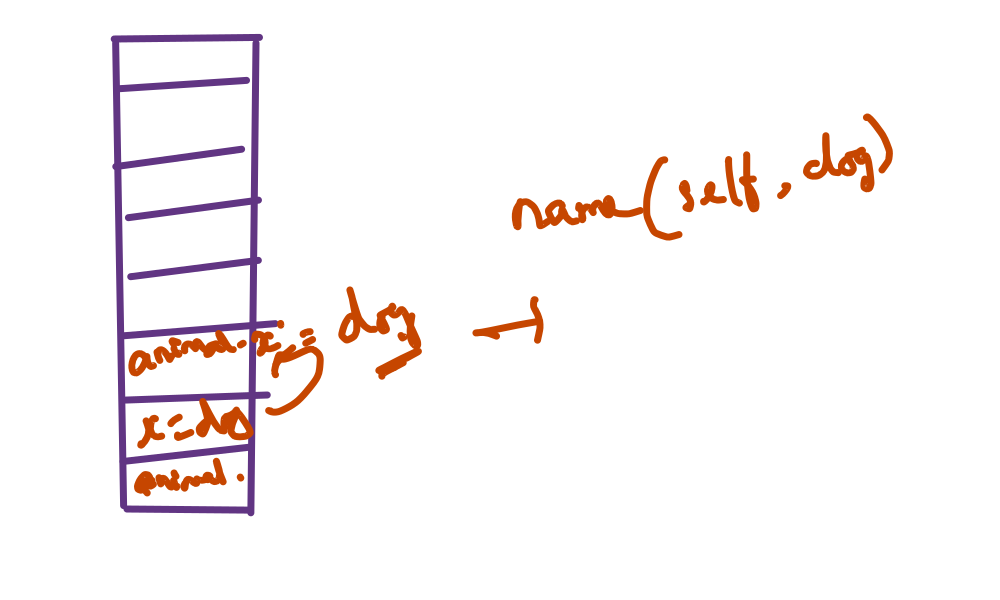 name(self, dog)
animal.x = dog
x = dog
animal.